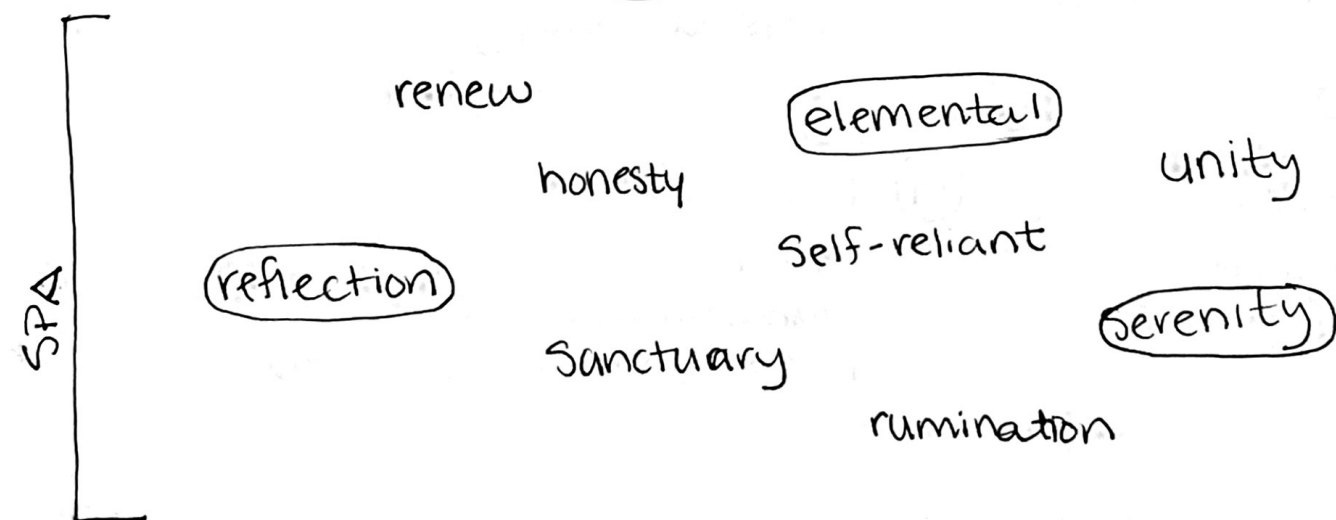 SPA
renew
elemental
honesty
unity
self-reliant
reflection
serenity
sanctuary
rumination